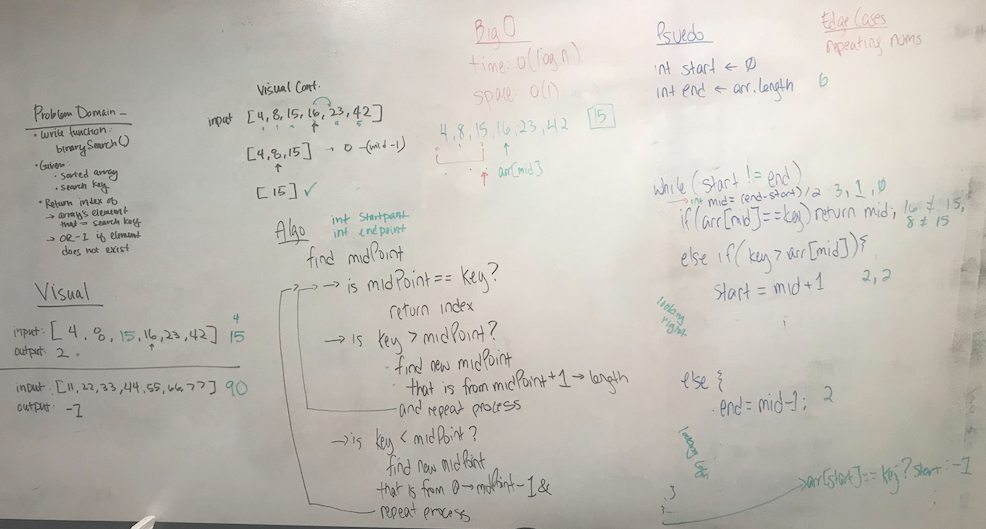 Problem Domain -
• Write function:
binarySearch()
• Given:
• sorted array
• search key
• Return index of
→ array's element
that == search key
→ OR -1 if element
does not exist
Visual
input: [4, 8, 15, 16, 23, 42] 15
4
output: 2.
input: [11, 22, 33, 44, 55, 66, 77] 90
output: -1
Visual Cont.
input [4, 8, 15, 16, 23, 42]
[4, 8, 15] → 0 -(mid-1)
[15] ✓
Algo
int Startpoint
int endpoint
find midPoint
→ is midPoint == key?
return index
→ is key > midPoint?
find new midPoint
that is from midPoint+1 → length
and repeat process
→ is key < midPoint?
find new midPoint
that is from 0 → midPoint-1 &
repeat process
Big O
time: O(log n)
space: O(1)
4, 8, 15, 16, 23, 42 [15]
arr[mid]
Psuedo
int start ← 0
int end ← arr.length 6
while (start != end)
→ int mid = (end-start)/2 3, 1, 0
if(arr[mid]==key) return mid; 16 ≠ 15,
8 ≠ 15
else if(key > arr[mid]){
start = mid+1 2, 2
looking
right
else {
end = mid-1; 2
looking
}
}
→ arr[start]==key? start : -1
Edge Cases
repeating nums